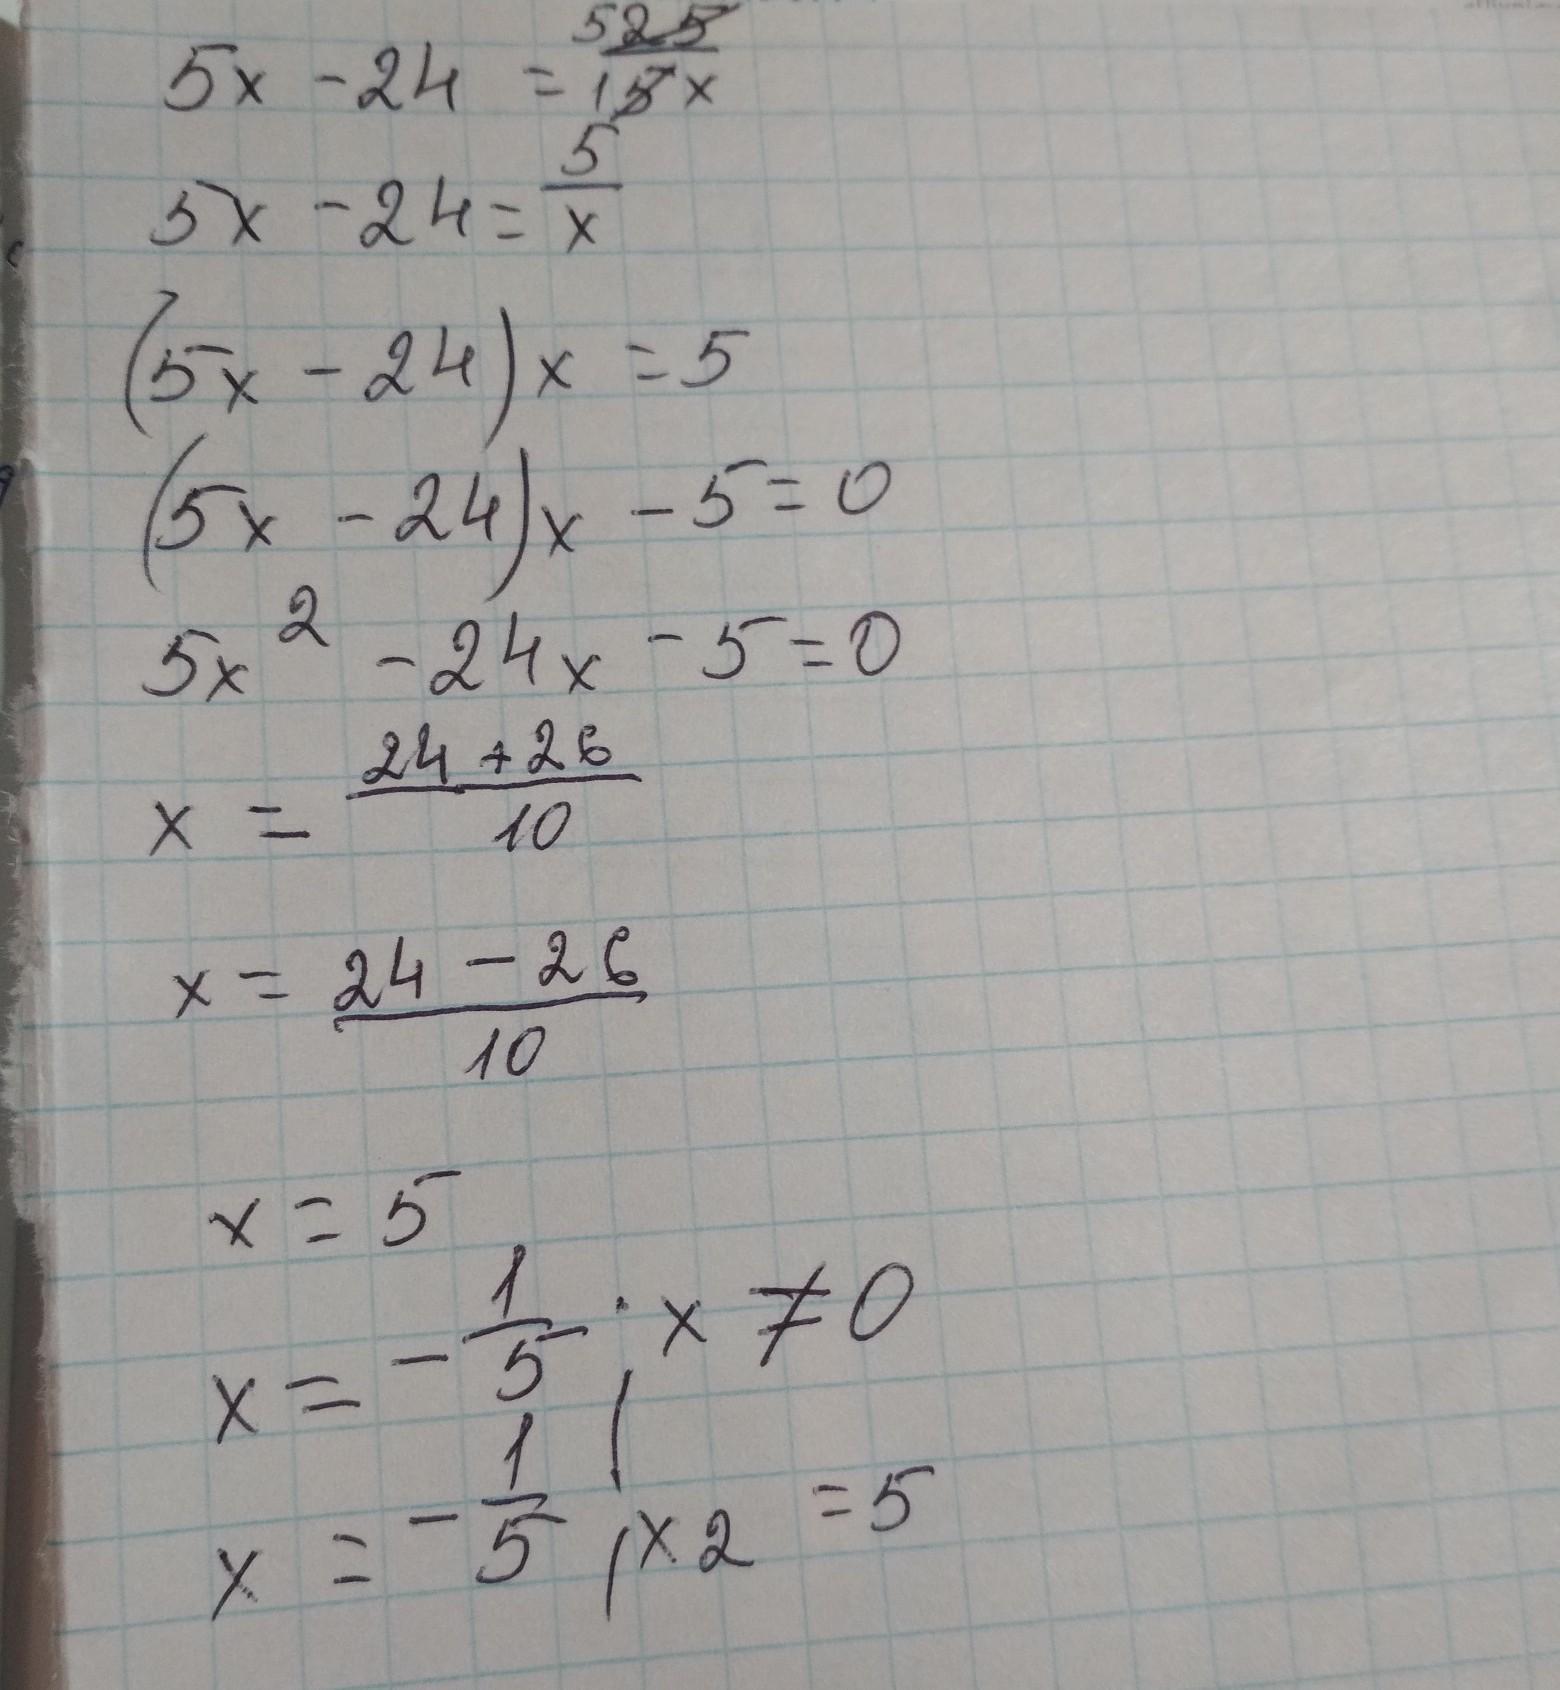 5x - 24 = 5 25 / 1 5 x
5x - 24 = 5/x
(5x - 24) x = 5
(5x - 24) x - 5 = 0
5x² - 24x - 5 = 0
x = (24 + 26)/10
x = (24 - 26)/10
x = 5
x = -1/5 , x ≠ 0
x = -1/5 , x2 = 5